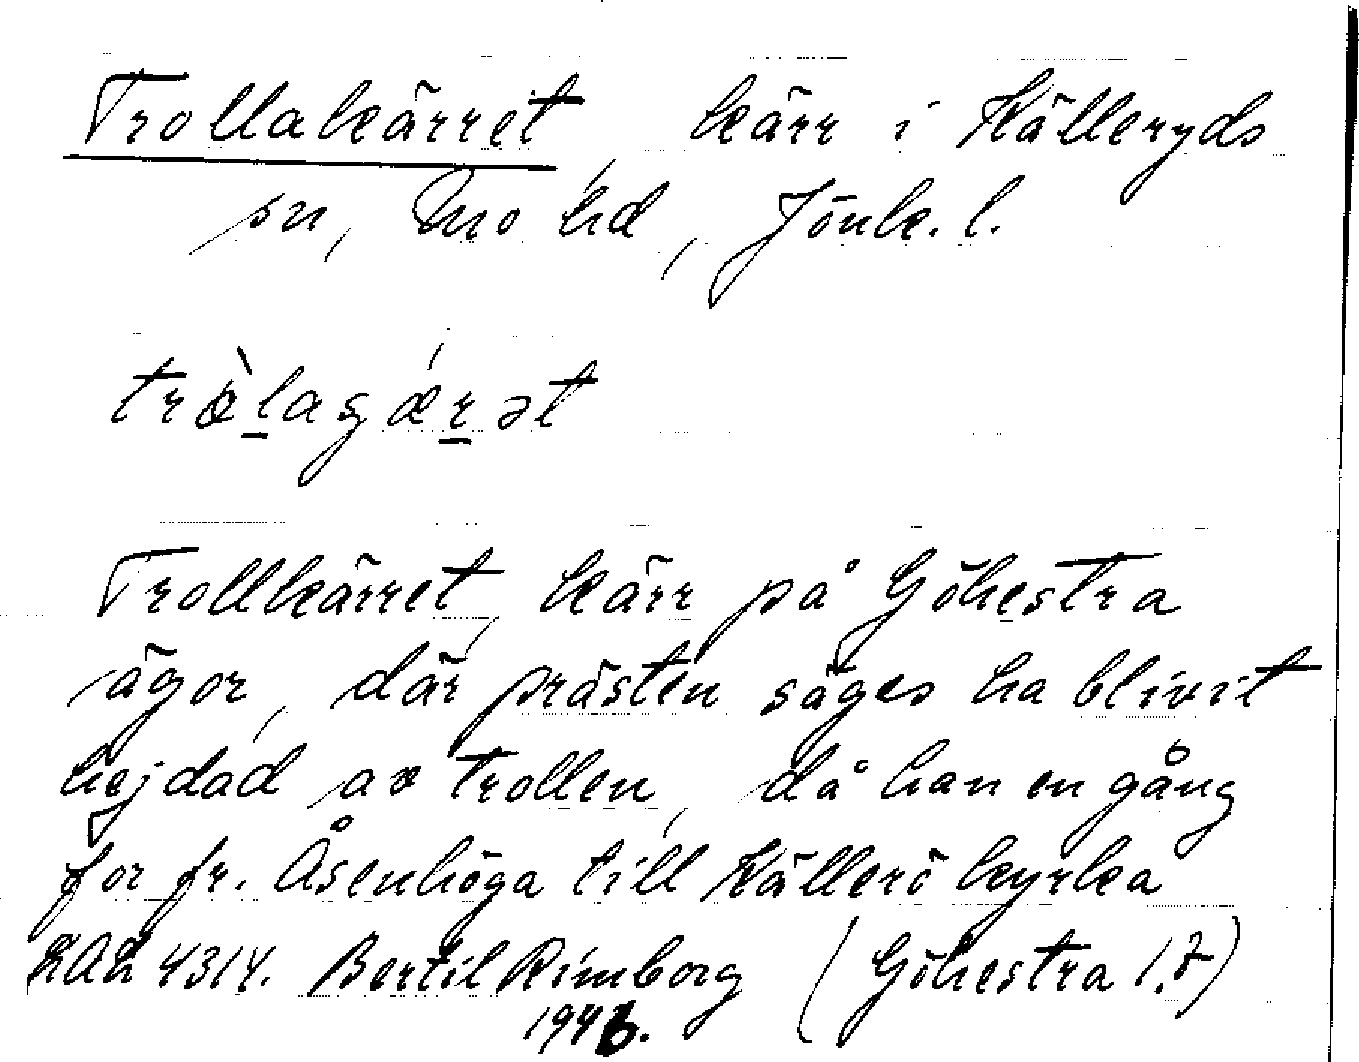 Trollakärret, kärr i Källeryds
sn, Mo hd, Jönk. l.
Trollkärret, kärr på Göhestra
ägor, där prästen säges ha blivit
hejdad av trollen, då han en gång
for fr. Åsenhöga till Källerö kyrka
4314. Bertil Rimborg (Göhestra
1946.